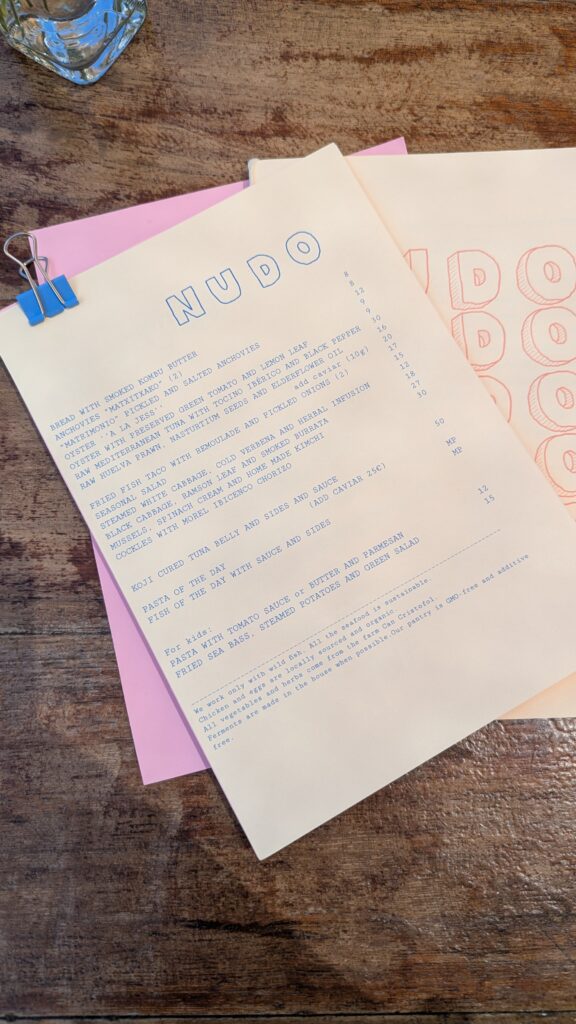 NUDO
BREAD WITH SMOKED KOMBU BUTTER 8
ANCHOVIES "MATXITXAKO" (2) 8
"MATRIMONIO" PICKLED AND SALTED ANCHOVIES 12
OYSTER ''A LA JESS'' 9
OYSTER WITH PRESERVED GREEN TOMATO AND LEMON LEAF 9
RAW MEDITERRANEAN TUNA WITH TOCINO IBÉRICO AND BLACK PEPPER 30
RAW HUELVA PRAWN, NASTURTIUM SEEDS AND ELDERFLOWER OIL 16
add caviar (10g) 20
FRIED FISH TACO WITH REMOULADE AND PICKLED ONIONS (2) 17
SEASONAL SALAD 15
STEAMED WHITE CABBAGE, COLD VERBENA AND HERBAL INFUSION 12
BLACK CABBAGE, RAMSON LEAF AND SMOKED BURRATA 18
MUSSELS, SPINACH CREAM AND HOME MADE KIMCHI 27
COCKLES WITH MOREL IBICENCO CHORIZO 30
KOJI CURED TUNA BELLY AND SIDES AND SAUCE 50
(ADD CAVIAR 25€)
PASTA OF THE DAY MP
FISH OF THE DAY WITH SAUCE AND SIDES MP
For kids:
PASTA WITH TOMATO SAUCE or BUTTER AND PARMESAN 12
FRIED SEA BASS, STEAMED POTATOES AND GREEN SALAD 15
We work only with wild fish. All the seafood is sustainable.
Chicken and eggs are locally sourced and organic.
All vegetables and herbs come from the farm Can Cristofol.
Ferments are made in the house when possible.Our pantry is GMO-free and additive
free.
DO
DO
O
O